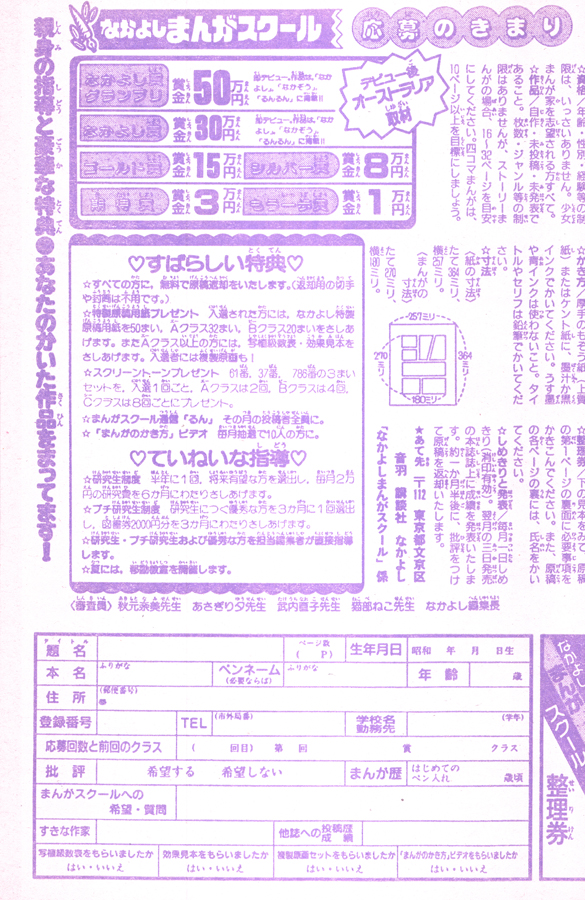 なかよしまんがスクール
応募のきまり
親身の指導と豪華な特典●あなたのかいた作品をまってます!
なかよし賞グランプリ 賞金50万円
即デビュー。作品は、「なかよし」、「なかぞう」、「るんるん」に掲載!!
なかよし賞 賞金30万円
即デビュー。作品は、「なかよし」、「なかぞう」、「るんるん」に掲載!!
ゴールド賞 賞金15万円
シルバー賞 賞金8万円
期待賞 賞金3万円
賞金1万円
デビュー後
オーストラリア
取材
☆資格/年齢・性別・経験等の制
限は、いっさいありません。少女
まんが家を志望される方すべて。
☆作品/自作・未投稿・未発表で
あること。枚数・ジャンル等の制
限はありませんが、ストーリーま
んがの場合、16〜32ページを目安
にしてください。四コマまんがは、
10ページ以上を目標にしましょう。
☆かき方/厚手のもぞう紙(上質
紙)またはケント紙に、墨汁か黒
インクでかいてください。うす墨
や青インクは使わないこと。タイ
トルやセリフは鉛筆でかいてくだ
さい。
☆寸法
〈紙の寸法〉
たて364ミリ、
横257ミリ
〈まんがの
寸法〉
たて270ミリ、
横180ミリ。
257ミリ
270ミリ
364ミリ
180ミリ
☆整理券/下の見本をみて、原稿
の第1ページの裏面に必要事項を
かきこんでください。また、原稿
の各ページの裏には、氏名をかい
てください。
☆しめきりと発表/毎月一日しめ
きり(消印有効)。翌月の三日発売
の本誌誌上に成績を発表いたしま
す。約一か月半後に、批評をつけ
て原稿を返却いたします。
☆あて先 〒112 東京都文京区
音羽 講談社 なかよし
「なかよしまんがスクール」係
♡すばらしい特典♡
☆すべての方に、無料で原稿返却をいたします。(返却用の切手
や封筒は不用です。)
☆特製原稿用紙プレゼント 入選された方には、なかよし特製
原稿用紙を50まい、Aクラス32まい、Bクラス20まいをさしあ
げます。またAクラス以上の方には、写植級数表・効果見本を
さしあげます。入選者には複製原画も!
☆スクリーントーンプレゼント 61番、37番、786番の3まい
セットを、入選1回ごと、Aクラスは2回、Bクラスは4回、
Cクラスは8回ごとにプレゼント。
☆まんがスクール通信「るん」 その月の投稿者全員に。
☆「まんがのかき方」ビデオ 毎月抽選で10人の方に。
♡ていねいな指導♡
☆研究生制度 半年に1回、将来有望な方を選出し、毎月2万
円の研究費を6か月にわたりさしあげます。
☆プチ研究生制度 研究生につぐ優秀な方を3か月に1回選出
し、図書券2000円分を3か月にわたりさしあげます。
☆研究生・プチ研究生および優秀な方を担当編集者が直接指導
します。
☆夏には、移動教室を開催します。
〈審査員〉秋元奈美先生 あさぎり夕先生 武内直子先生 猫部ねこ先生 なかよし編集長
なかよしまんがスクール 整理券
題名 タイトル ページ数 ( P) 生年月日 昭和 年 月 日生
本名 ふりがな ペンネーム (必要ならば) ふりがな 年齢 歳
住所 (郵便番号)
登録番号 TEL (市外局番) 学校名 勤務先 (学年)
応募回数と前回のクラス ( 回目) 第 回 賞 クラス
批評 希望する 希望しない まんが歴 はじめてのペン入れ 歳頃
まんがスクールへの
希望・質問
すきな作家 他誌への投稿歴 成績
写植級数表をもらいましたか はい・いいえ
効果見本をもらいましたか はい・いいえ
複製原画セットをもらいましたか はい・いいえ
「まんがのかき方」ビデオをもらいましたか はい・いいえ